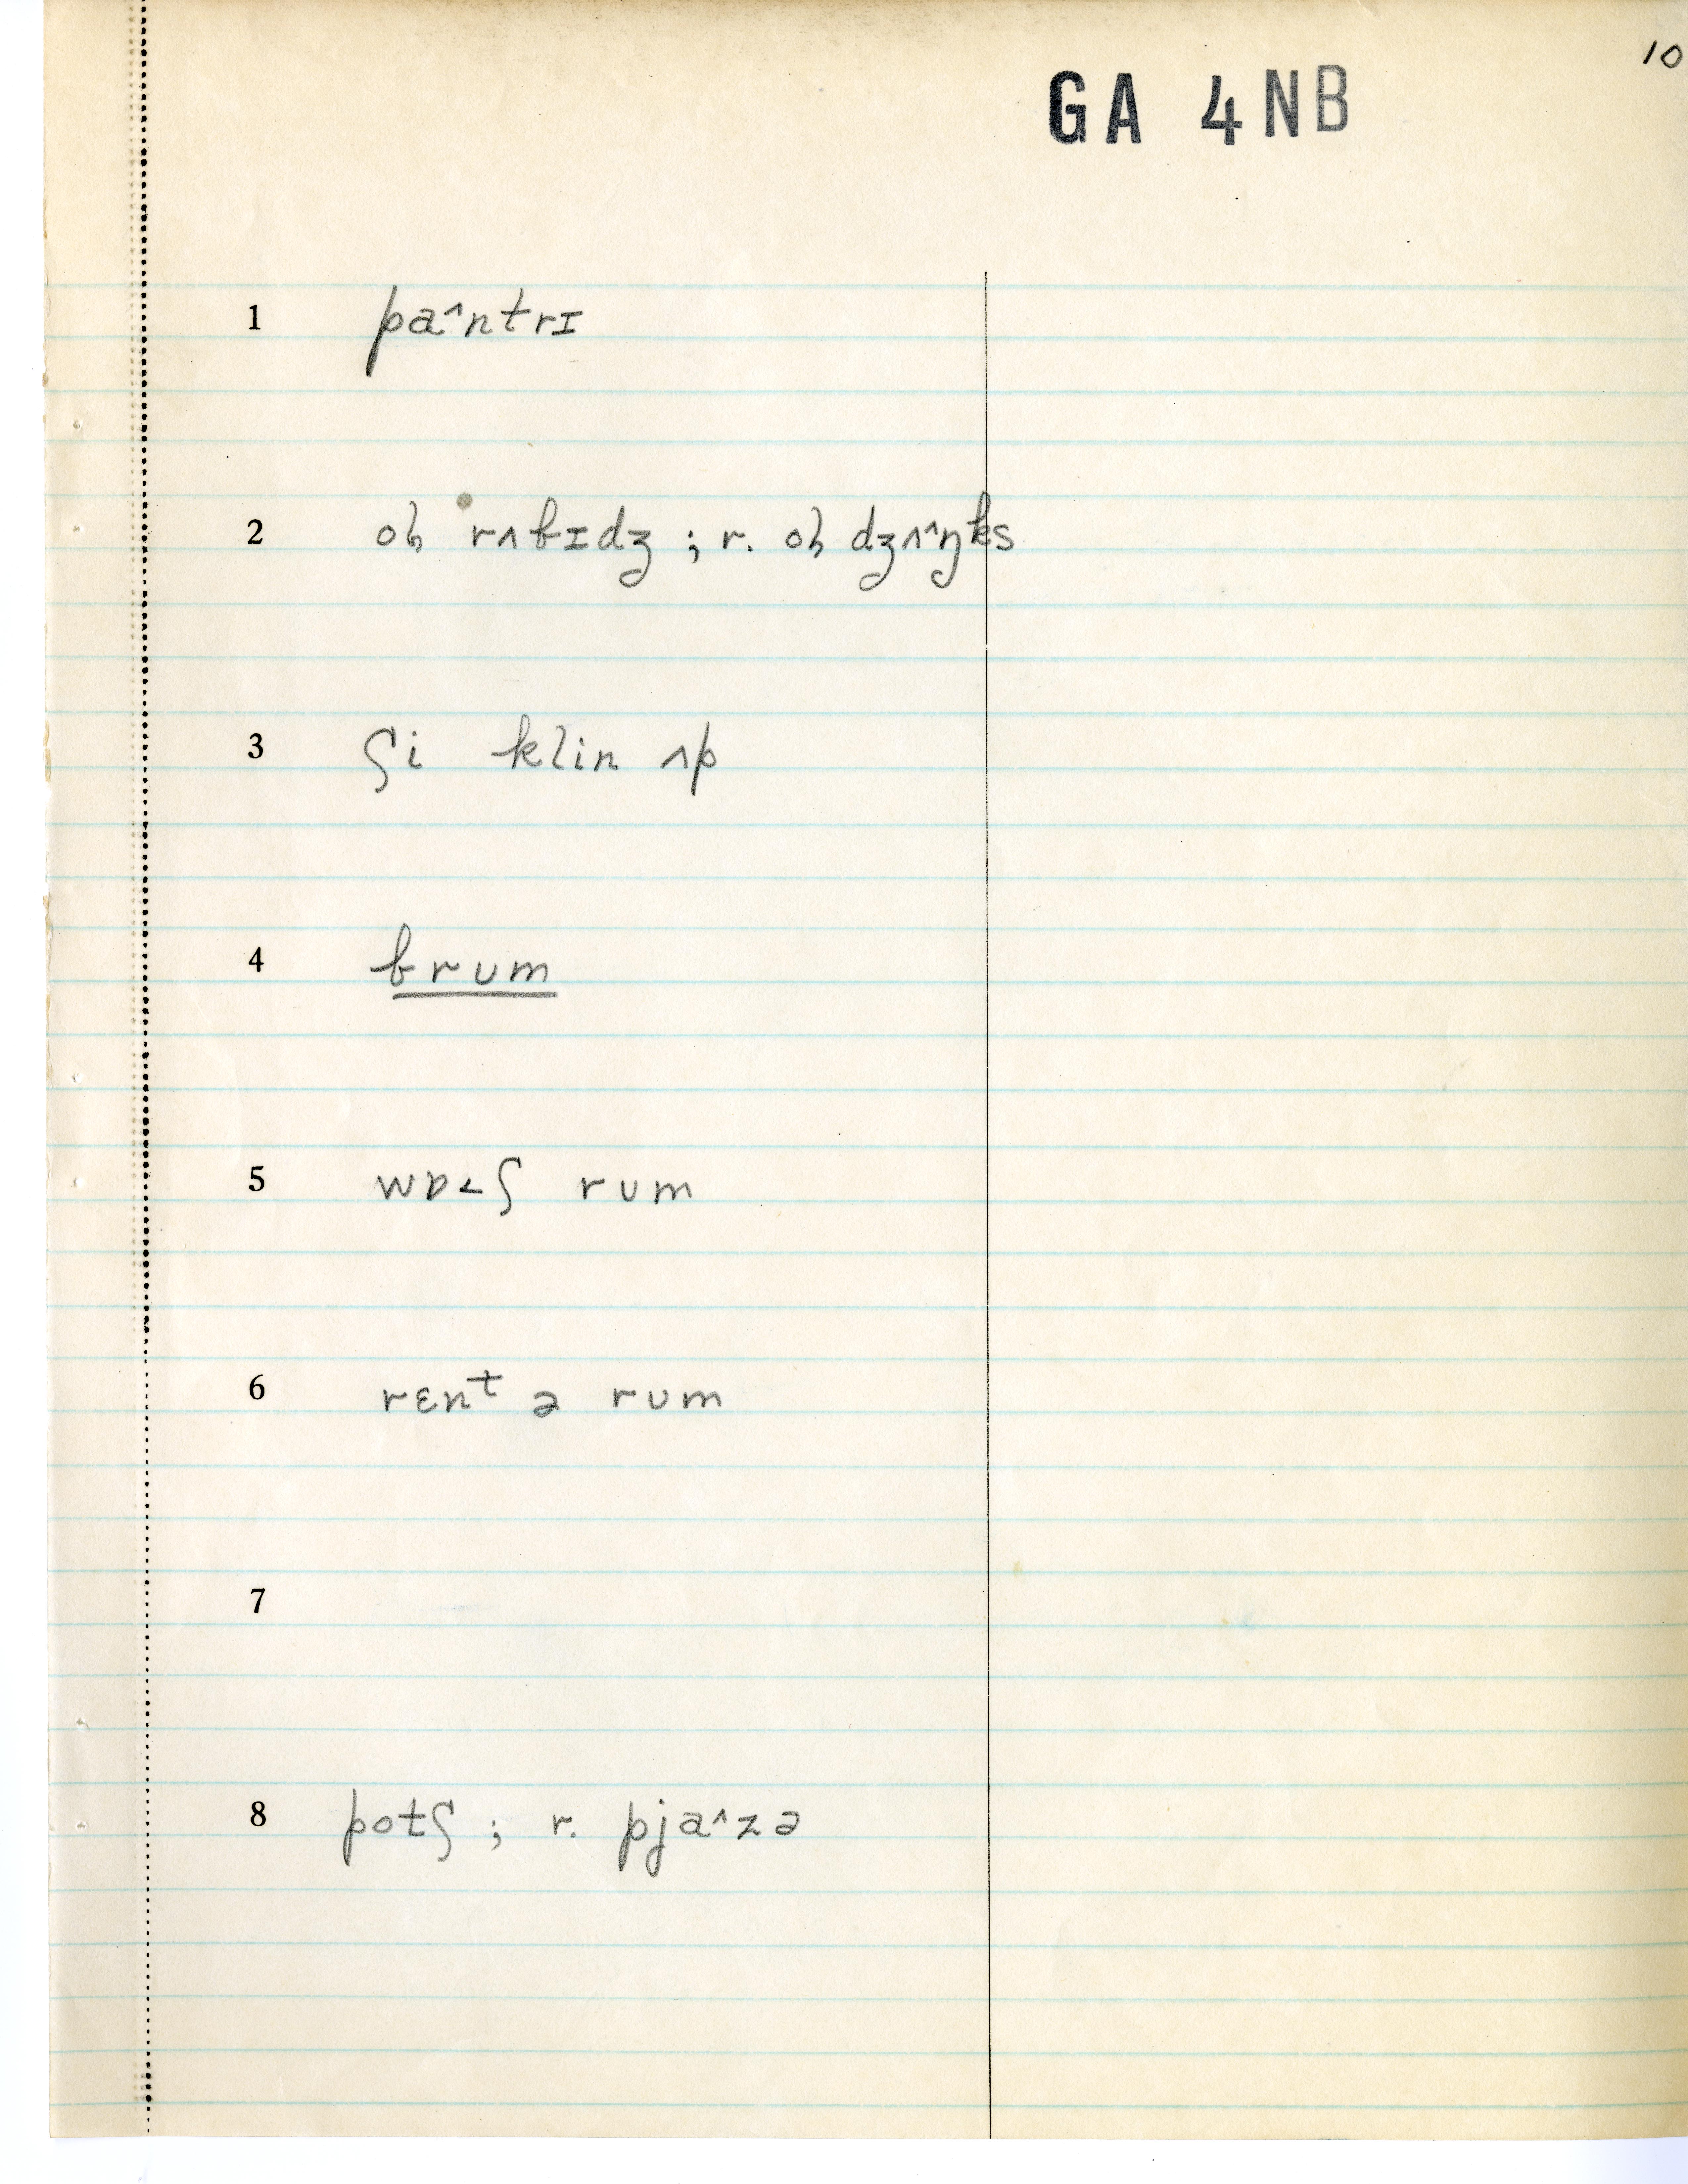 10
GA 4NB
1 pa^ntrɪ
2 oɫ rʌbɪdʒ ; r. oɫ dʒʌ^ŋks
3 ʃi klin ʌp
4 brum
5 wɒ˂ʃ rum
6 rɛnᵗ ə rum
7
8 potʃ ; r. pja^zə